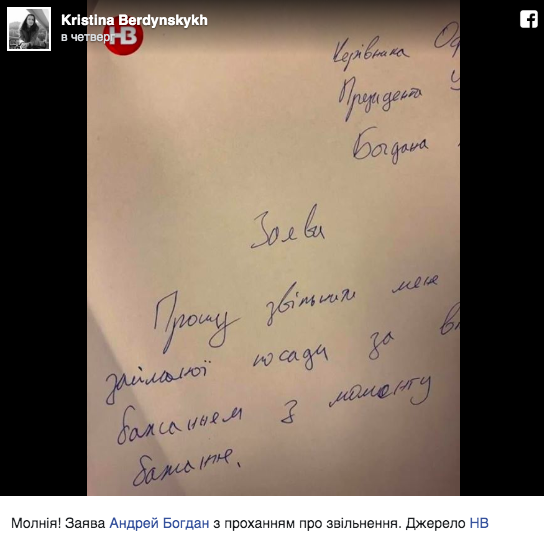 Kristina Berdynskykh
в четверг
НВ
Керівника Оф
Президента У
Богдана
Заява
Прошу звільнити мене
займаної посади за вл
бажанням з моменту
бажання.
Молнія! Заява Андрей Богдан з проханням про звільнення. Джерело НВ